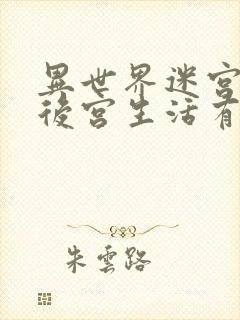 異世界迷宮
後宮生活有
朱雲路